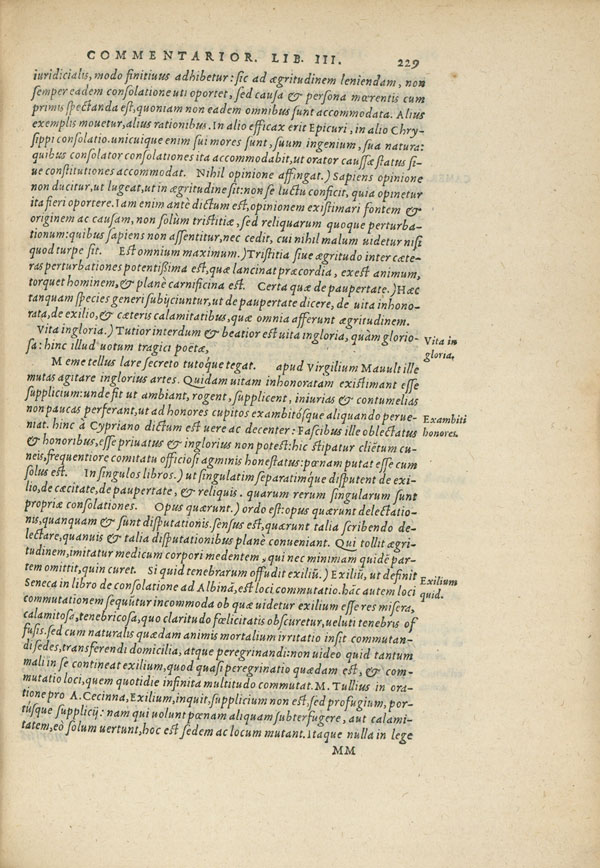 COMMENTARIOR. LIB. III. 229
iuridicialis, modo finitiuus adhibetur: sic ad ægritudinem leniendam, non
semper eadem consolatione uti oportet, sed causa & persona mœrentis cum
primis spectanda est, quoniam non eadem omnibus sunt accommodata. Alius
exemplis mouetur, alius rationibus. In alio efficax erit Epicuri, in alio Chry-
sippi consolatio. unicuique enim sui mores sunt, suum ingenium, sua natura:
quibus consolator consolationes ita accommodabit, ut orator caussæ status si-
ue constitutiones accommodat. Nihil opinione affingat.) Sapiens opinione
non ducitur, ut lugeat, ut in ægritudine sit: non se luctu conficit, quia opinetur
ita fieri oportere. Iam enim antè dictum est, opinionem existimari fontem &
originem ac causam, non solùm tristitiæ, sed reliquarum quoque perturba-
tionum: quibus sapiens non assentitur, nec cedit, cui nihil malum uidetur nisi
quod turpe sit. Est omnium maximum.) Tristitia siue ægritudo inter cæte-
ras perturbationes potentissima est, quæ lancinat præcordia, exest animum,
torquet hominem, & planè carnificina est. Certa quæ de paupertate.) Hæc
tanquam species generi subijciuntur, ut de paupertate dicere, de uita inhono-
rata, de exilio, & cæteris calamitatibus, quæ omnia afferunt ægritudinem.
Vita ingloria.) Tutior interdum & beatior est uita ingloria, quàm glorio-
sa: hinc illud uotum tragici poëtæ,
Vita in
gloria.
Me me tellus lare secreto tutoq́ue tegat. apud Virgilium Mauult ille
mutas agitare inglorius artes. Quidam uitam inhonoratam existimant esse
supplicium: unde fit ut ambiant, rogent, supplicent, iniurias & contumelias
non paucas perferant, ut ad honores cupitos exambitósque aliquando perue-
niat. hinc à Cypriano dictum est uere ac decenter: Fascibus ille oblectatus
Exambiti
honores.
& honoribus, esse priuatus & inglorius non potest: hic stipatur cliētum cu-
neis, frequentiore comitatu officiosi agminis honestatus: pœnam putat esse cum
solus est. In singulos libros.) ut singulatim separatimque disputent de exi-
lio, de cæcitate, de paupertate, & reliquis. quarum rerum singularum sunt
propriæ consolationes. Opus quærunt.) ordo est: opus quærunt delectatio-
nis, quanquam & sunt disputationis. sensus est, quærunt talia scribendo de-
lectare, quanuis & talia disputationibus planè conueniant. Qui tollit ægri-
tudinem, imitatur medicum corpori medentem, qui nec minimam quidē par-
tem omittit, quin curet. Si quid tenebrarum offudit exiliū.) Exiliū, ut definit
Exilium
quid.
Seneca in libro de consolatione ad Albinā, est loci commutatio. hāc autem loci
commutationem sequūtur incommoda ob quæ uidetur exilium esse res misera,
calamitosa, tenebricosa, quo claritudo fœlicitatis obscuretur, ueluti tenebris of
fusis. sed cum naturalis quædam animis mortalium irritatio insit commutan-
di sedes, transferendi domicilia, atque peregrinandi: non uideo quid tantum
mali in se contineat exilium, quod quasi peregrinatio quædam est, & com-
mutatio loci, quem quotidie infinita multitudo commutat. M. Tullius in ora-
tione pro A. Cecinna, Exilium, inquit, supplicium non est, sed profugium, por-
túsque supplicij: nam qui uolunt pœnam aliquam subterfugere, aut calami-
tatem, eò solum uertunt, hoc est sedem ac locum mutant. Itaque nulla in lege
MM